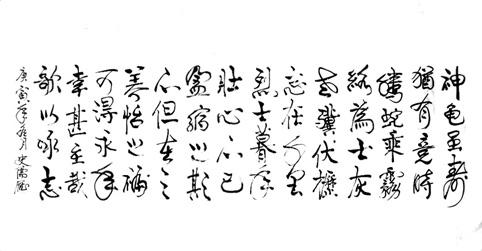 神龟虽寿
猶有竟時
騰蛇乘霧
終為土灰
老驥伏櫪
志在千里
烈士暮年
壯心不已
盈縮之期
不但在天
養怡之福
可得永年
幸甚至哉
歌以咏志
庚寅年月 史